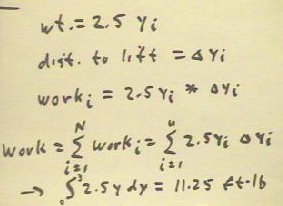 wt. = 2.5 yi
dist. to lift = Δyi
worki = 2.5 yi * Δyi
Work = N∑i=1 worki = n∑i=1 2.5 yi Δyi
→ ∫₀³ 2.5 y dy = 11.25 ft-lb